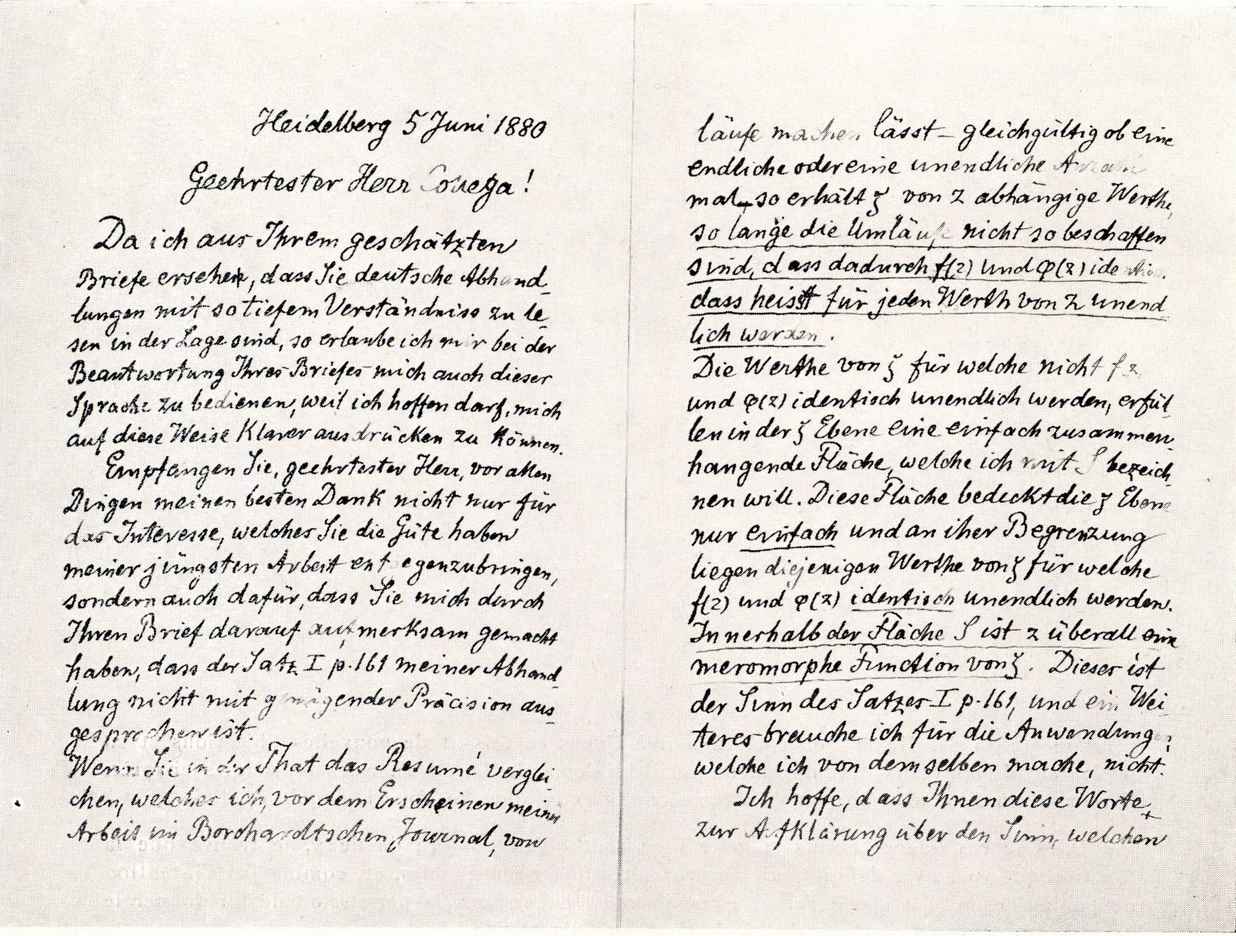 Heidelberg 5 Juni 1880
Geehrtester Herr !
Da ich aus Ihrem geschätzten
Briefe ersehen, dass Sie deutsche Abhand-
lungen mit so tiefem Verständniss zu le-
sen in der Lage sind, so erlaube ich mir bei der
Beantwortung Ihres Briefes mich auch dieser
Sprache zu bedienen, weil ich hoffen darf, mich
auf diese Weise klarer ausdrücken zu können.
Empfangen Sie, geehrtester Herr, vor allen
Dingen meinen besten Dank nicht nur für
das Interesse, welches Sie die Güte haben
meiner jüngsten Arbeit entgegenzubringen,
sondern auch dafür, dass Sie mich durch
Ihren Brief darauf aufmerksam gemacht
haben, dass der Satz I p. 161 meiner Abhand-
lung nicht mit genügender Präcision aus
gesprochen ist.
Wenn Sie in der That das Resumé verglei
chen, welches ich, vor dem Erscheinen meiner
Arbeit im Borchardtschen Journal, von
läufe machen lässt – gleichgültig ob eine
endliche oder eine unendliche Anzahl
mal – so erhält ζ von z abhängige Werthe,
so lange die Umläufe nicht so beschaffen
sind, dass dadurch f(z) und φ(z) identisch
dass heisst für jeden Werth von z unend
lich werden.
Die Werthe von ζ für welche nicht f z
und φ(z) identisch unendlich werden, erfül-
len in der ζ Ebene eine einfach zusammen
hangende Fläche, welche ich mit S bezeich
nen will. Diese Fläche bedeckt die ζ Ebene
nur einfach und an iher Begrenzung
liegen diejenigen Werthe von ζ für welche
f(z) und φ(z) identisch unendlich werden.
Innerhalb der Fläche S ist z überall eine
meromorphe Function von ζ. Dieses ist
der Sinn des Satzes I p. 161, und ein Wei
teres brauche ich für die Anwendung,
welche ich von demselben mache, nicht.
Ich hoffe, dass Ihnen diese Worte
zur Afklärung über den Sinn, welchen